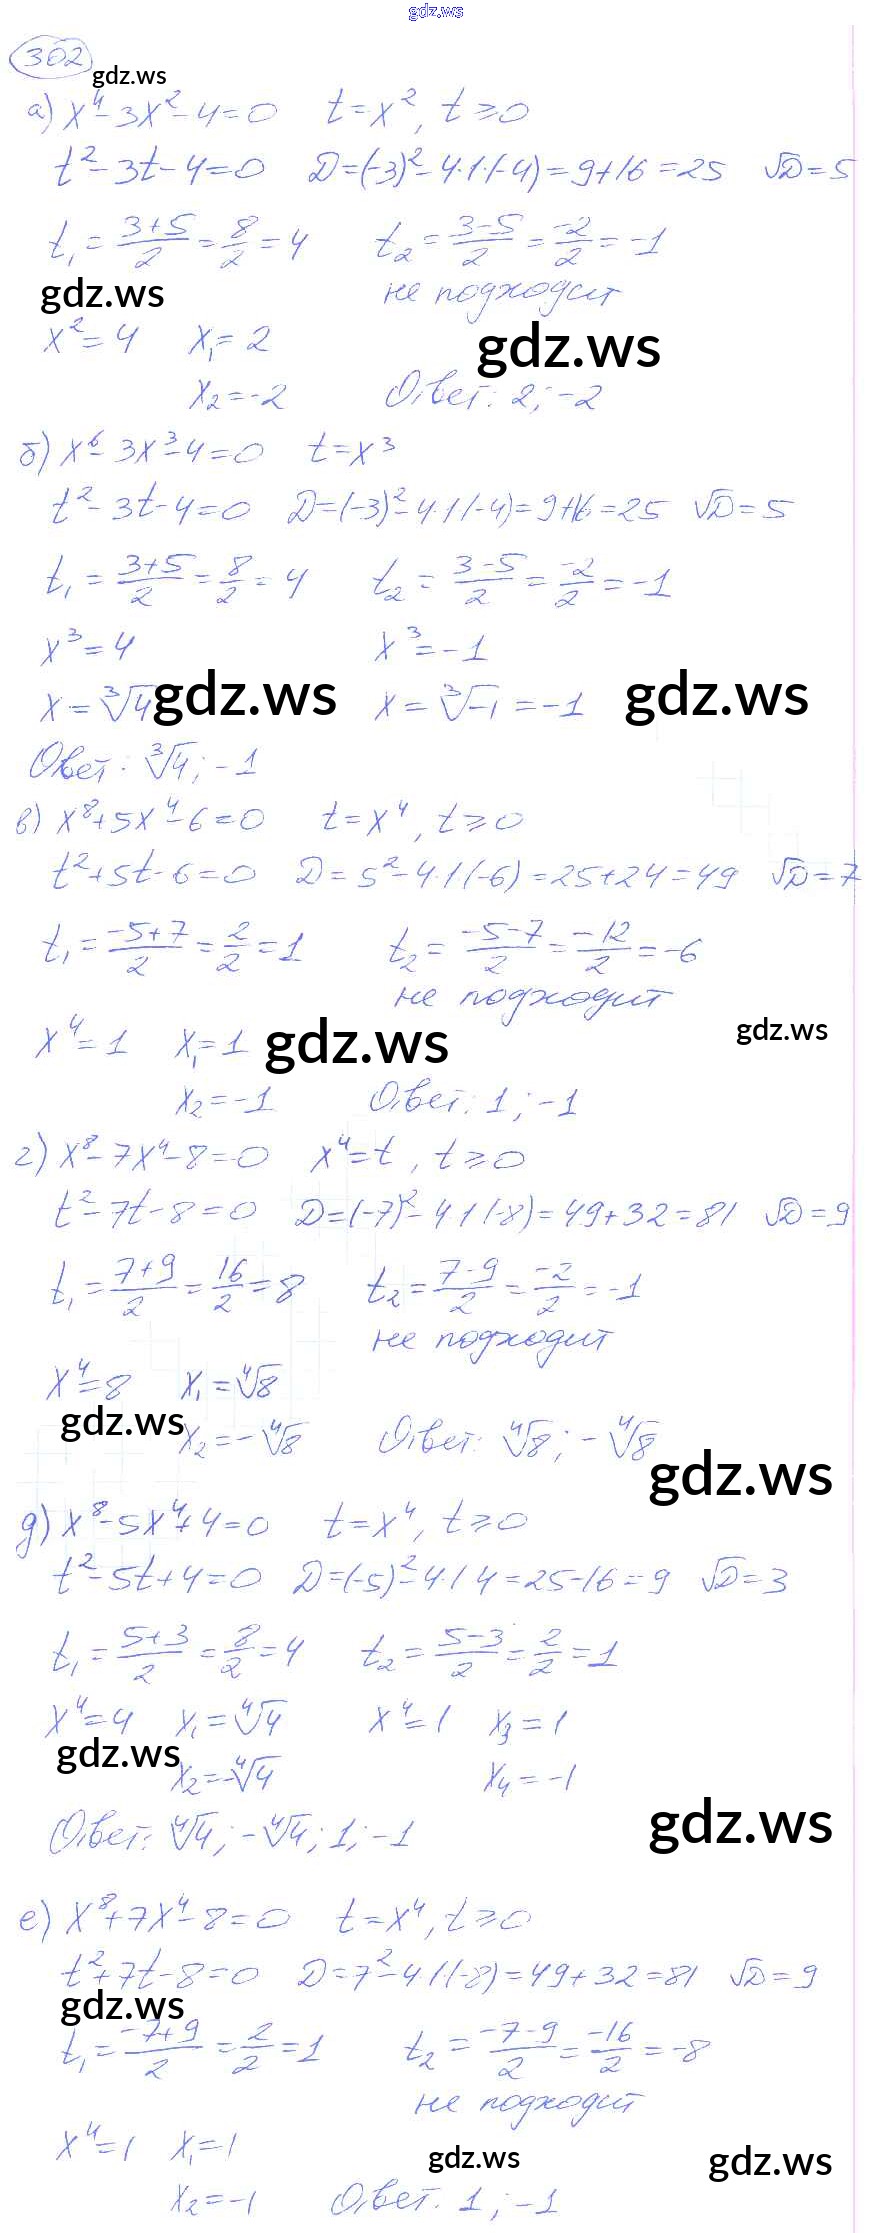 gdz.ws
302
gdz.ws
а) x⁴-3x²-4=0 t=x², t≥0
t²-3t-4=0 D=(-3)²-4·1·(-4)=9+16=25 √D=5
t₁=(3+5)/2=8/2=4 t₂=(3-5)/2=-2/2=-1
gdz.ws не подходит
x²=4 x₁=2 gdz.ws
x₂=-2 Ответ: 2; -2
б) x⁶-3x³-4=0 t=x³
t²-3t-4=0 D=(-3)²-4·1·(-4)=9+16=25 √D=5
t₁=(3+5)/2=8/2=4 t₂=(3-5)/2=-2/2=-1
x³=4 x³=-1
x=∛4 gdz.ws x=∛-1=-1 gdz.ws
Ответ: ∛4; -1
в) x⁸+5x⁴-6=0 t=x⁴, t≥0
t²+5t-6=0 D=5²-4·1·(-6)=25+24=49 √D=7
t₁=(-5+7)/2=2/2=1 t₂=(-5-7)/2=-12/2=-6
не подходит
x⁴=1 x₁=1 gdz.ws gdz.ws
x₂=-1 Ответ: 1; -1
г) x⁸-7x⁴-8=0 x⁴=t, t≥0
t²-7t-8=0 D=(-7)²-4·1·(-8)=49+32=81 √D=9
t₁=(7+9)/2=16/2=8 t₂=(7-9)/2=-2/2=-1
не подходит
x⁴=8 x₁=∜8
gdz.ws x₂=-∜8 Ответ: ∜8; -∜8
gdz.ws
д) x⁸-5x⁴+4=0 t=x⁴, t≥0
t²-5t+4=0 D=(-5)²-4·1·4=25-16=9 √D=3
t₁=(5+3)/2=8/2=4 t₂=(5-3)/2=2/2=1
x⁴=4 x₁=∜4 x⁴=1 x₃=1
gdz.ws x₂=-∜4 x₄=-1
Ответ: ∜4; -∜4; 1; -1 gdz.ws
е) x⁸+7x⁴-8=0 t=x⁴, t≥0
t²+7t-8=0 D=7²-4·1·(-8)=49+32=81 √D=9
gdz.ws
t₁=(-7+9)/2=2/2=1 t₂=(-7-9)/2=-16/2=-8
не подходит
x⁴=1 x₁=1 gdz.ws gdz.ws
x₂=-1 Ответ: 1; -1